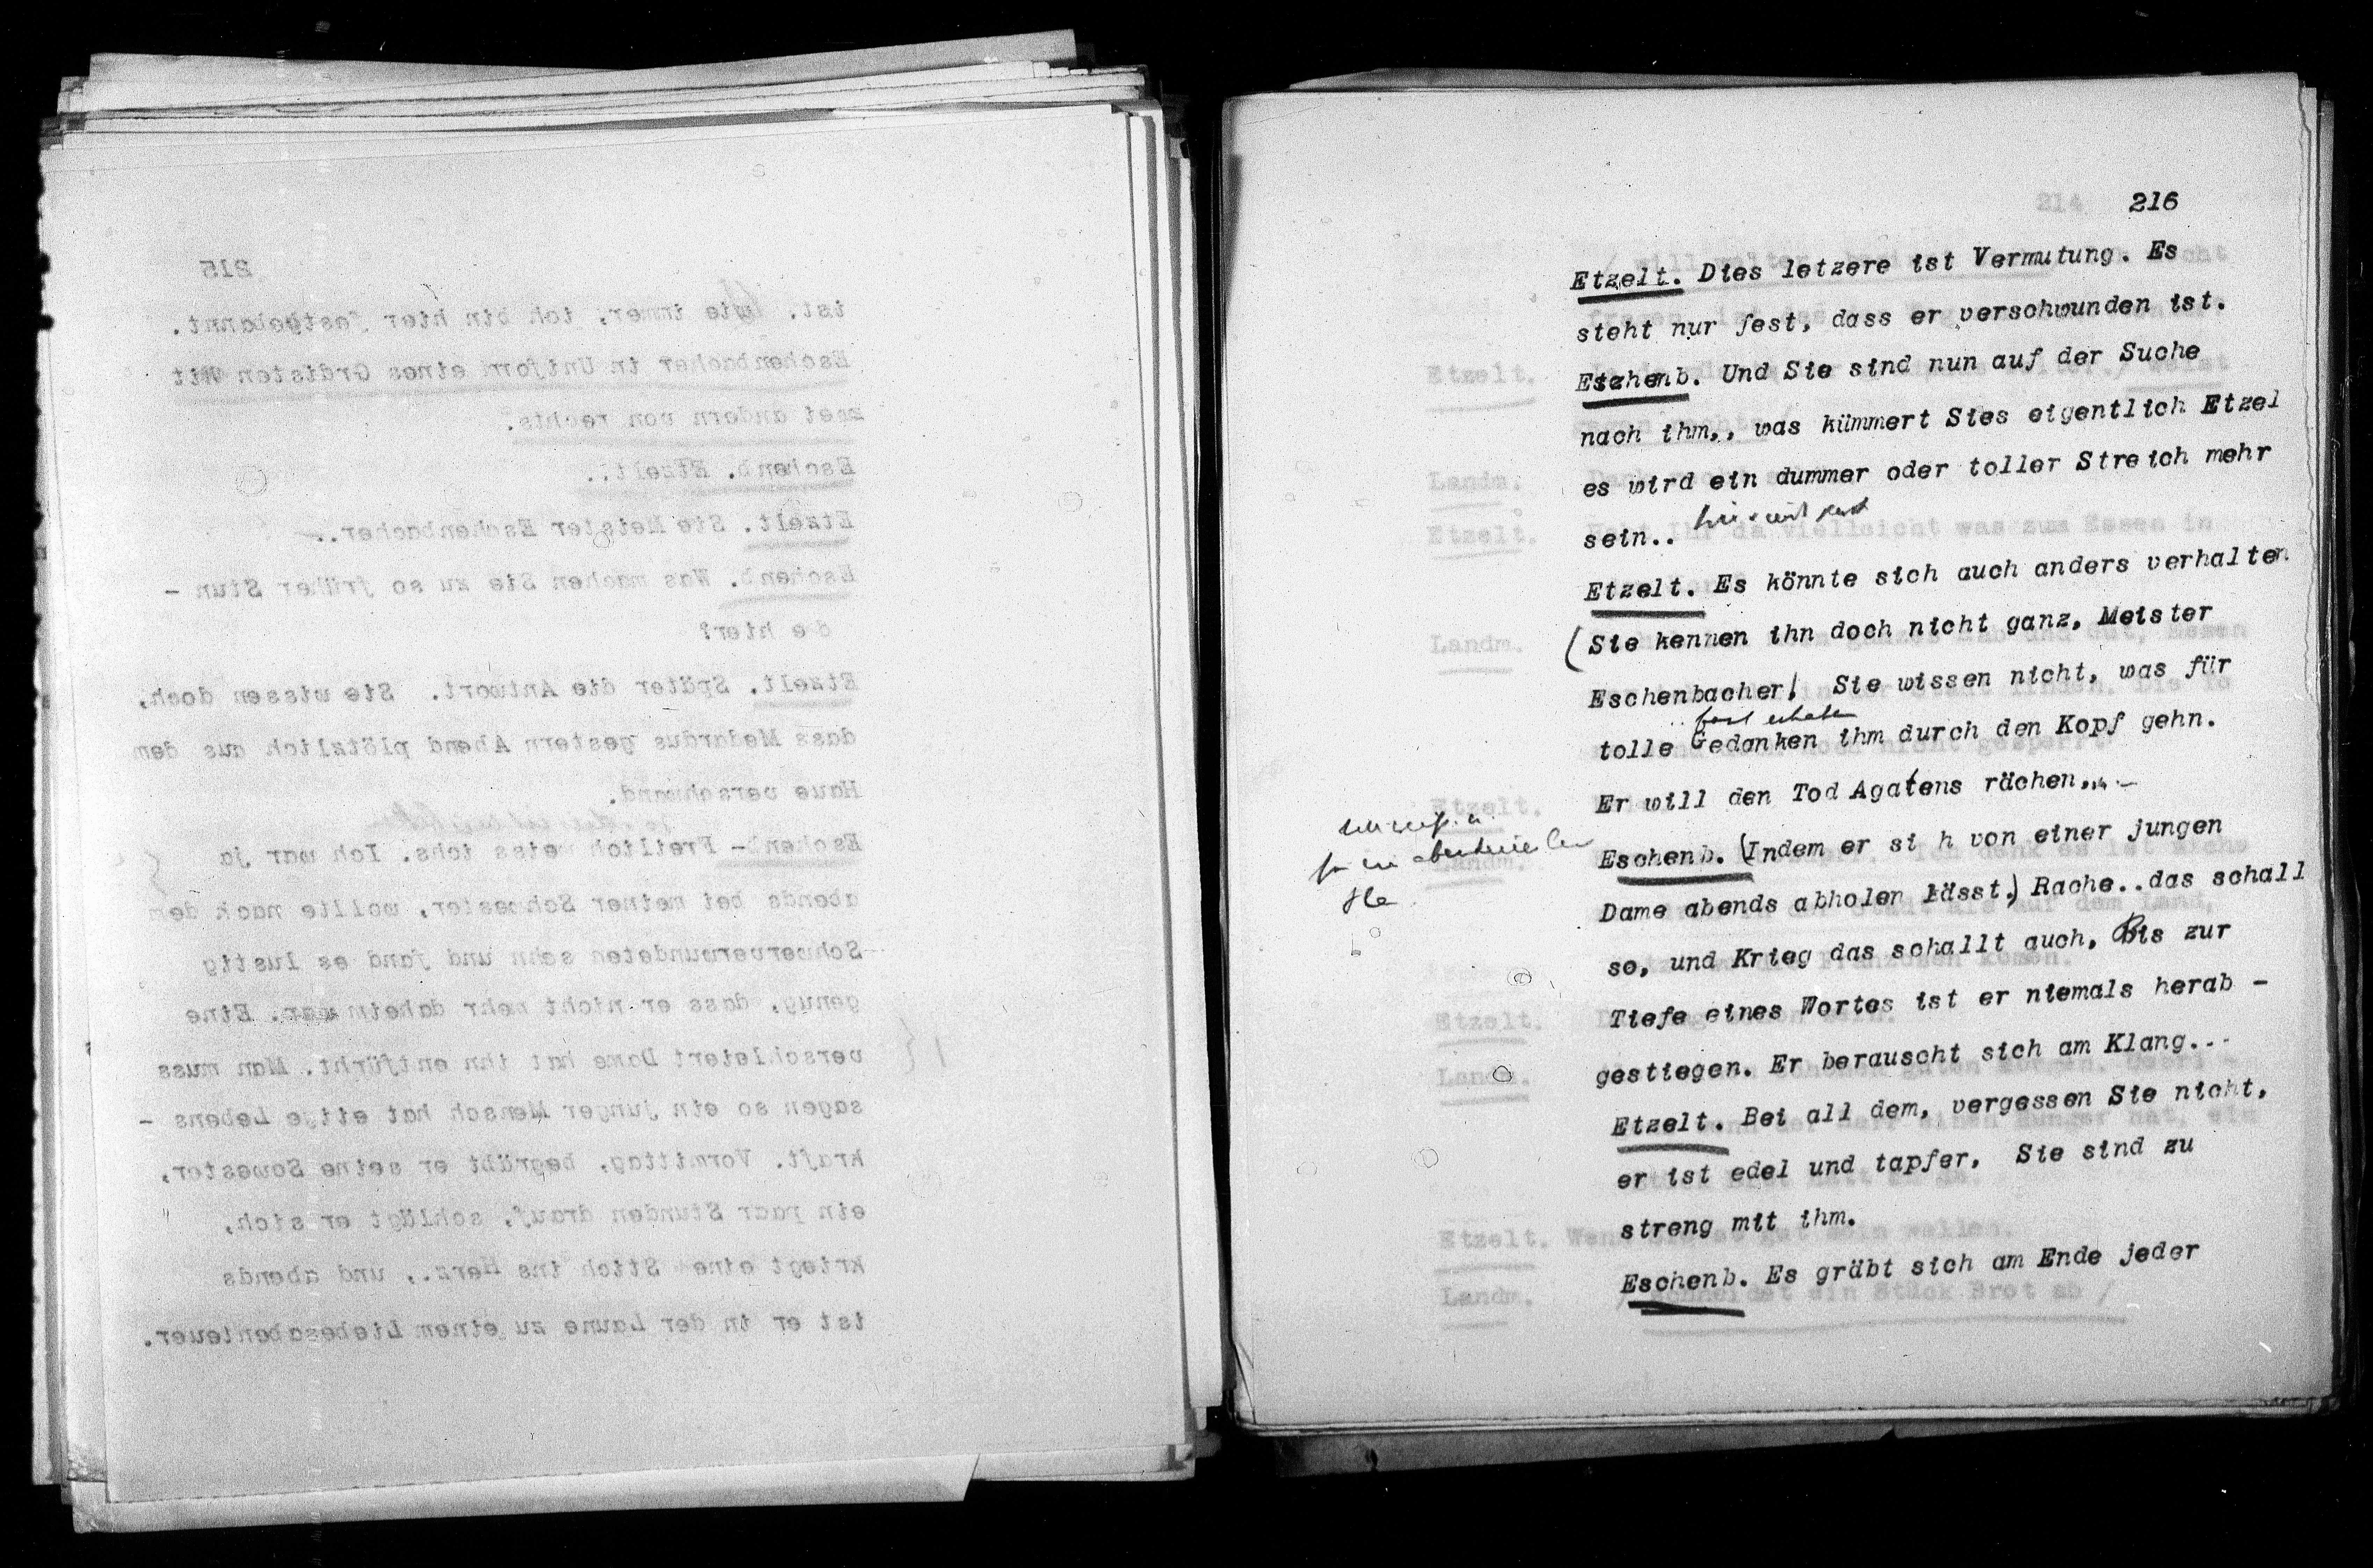 215
ist. wie immer, ich bin hier festgebannt.
Eschenbacher in Uniform eines Grdisten Mit
zwei andern von rechts.
Eschenb. Etzelt..
Etzelt. Sie Meister Eschenbacher..
Eschenb. Was machen Sie zu so früher Stun -
de hier?
Etzelt. Später die Antwort. Sie wissen doch,
dass Medardus gestern Abend plötzlich aus dem
Haue verschwand.
Eschenb- Freilich weiss ichs. Ich war ja
abends bei meiner Schwester, wollte nach dem
Schwerverwundeten sehn und fand es lustig
genug, dass er nicht mehr daheim war. Eine
verschleiert Dame hat ihn entführt. Man muss
sagen so ein junger Mensch hat eitge Lebens -
kraft. Vormittag, begräbt er seine Sowester,
ein paar Stunden drauf, schlägt er sich,
kriegt eine Stich ins Herz., und abends
ist er in der Laune zu einem Liebesabenteuer.
216
Etzelt. Dies letzere ist Vermutung. Es
steht nur fest, dass er verschwunden ist.
Eschenb. Und Sie sind nun auf der Suche
nach ihm,, was kümmert Sies eigentlich Etzel
es wird ein dummer oder toller Streich mehr
sein..
Etzelt. Es könnte sich auch anders verhalten
(Sie kennen ihn doch nicht ganz, Meister
Eschenbacher! Sie wissen nicht, was für
tolle Gedanken ihm durch den Kopf gehn.
Er will den Tod Agatens rächen...-
Eschenb. (Indem er si h von einer jungen
Dame abends abholen lässt.) Rache..das schall
so, und Krieg das schallt auch, Bis zur
Tiefe eines Wortes ist er niemals herab -
gestiegen. Er berauscht sich am Klang...
Etzelt. Bei all dem, vergessen Sie nicht,
er ist edel und tapfer, Sie sind zu
streng mit ihm.
Eschenb. Es gräbt sich am Ende jeder